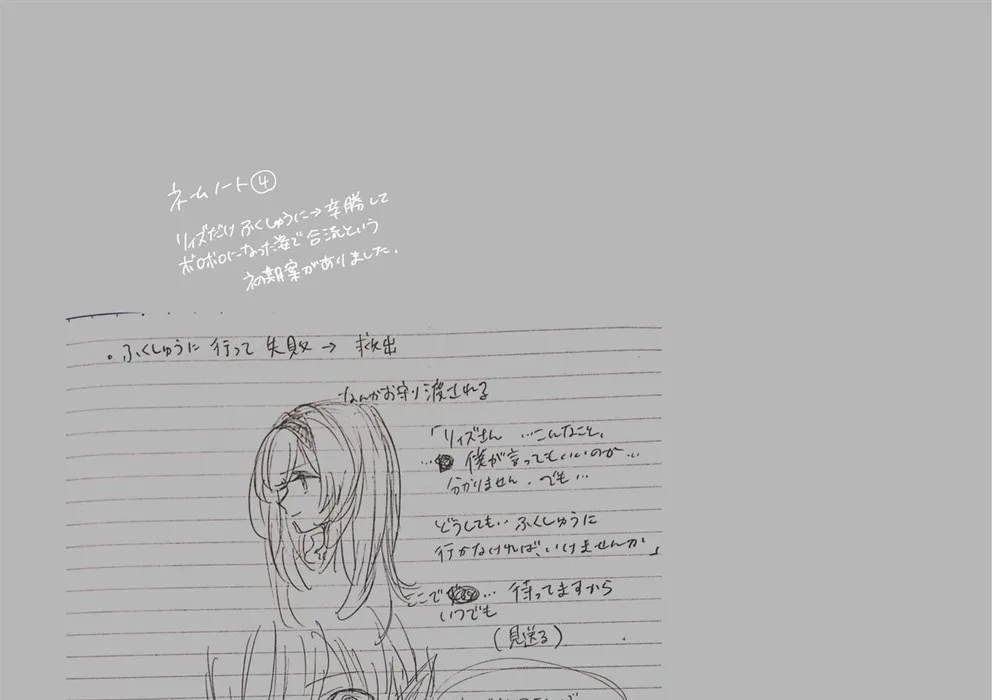 ネームノート④
リィズだけふくしゅうに→辛勝して
ボロボロになった姿で合流という
初期案がありました。
・ふくしゅうに行って失敗→救出
なんかお守り渡される
「リィズさん …こんなこと、
… 僕が言ってもいいのか…
分かりません。でも…
どうしても…ふくしゅうに
行かなければ、いけませんか」
ここで … 待ってますから
いつでも
(見送る)